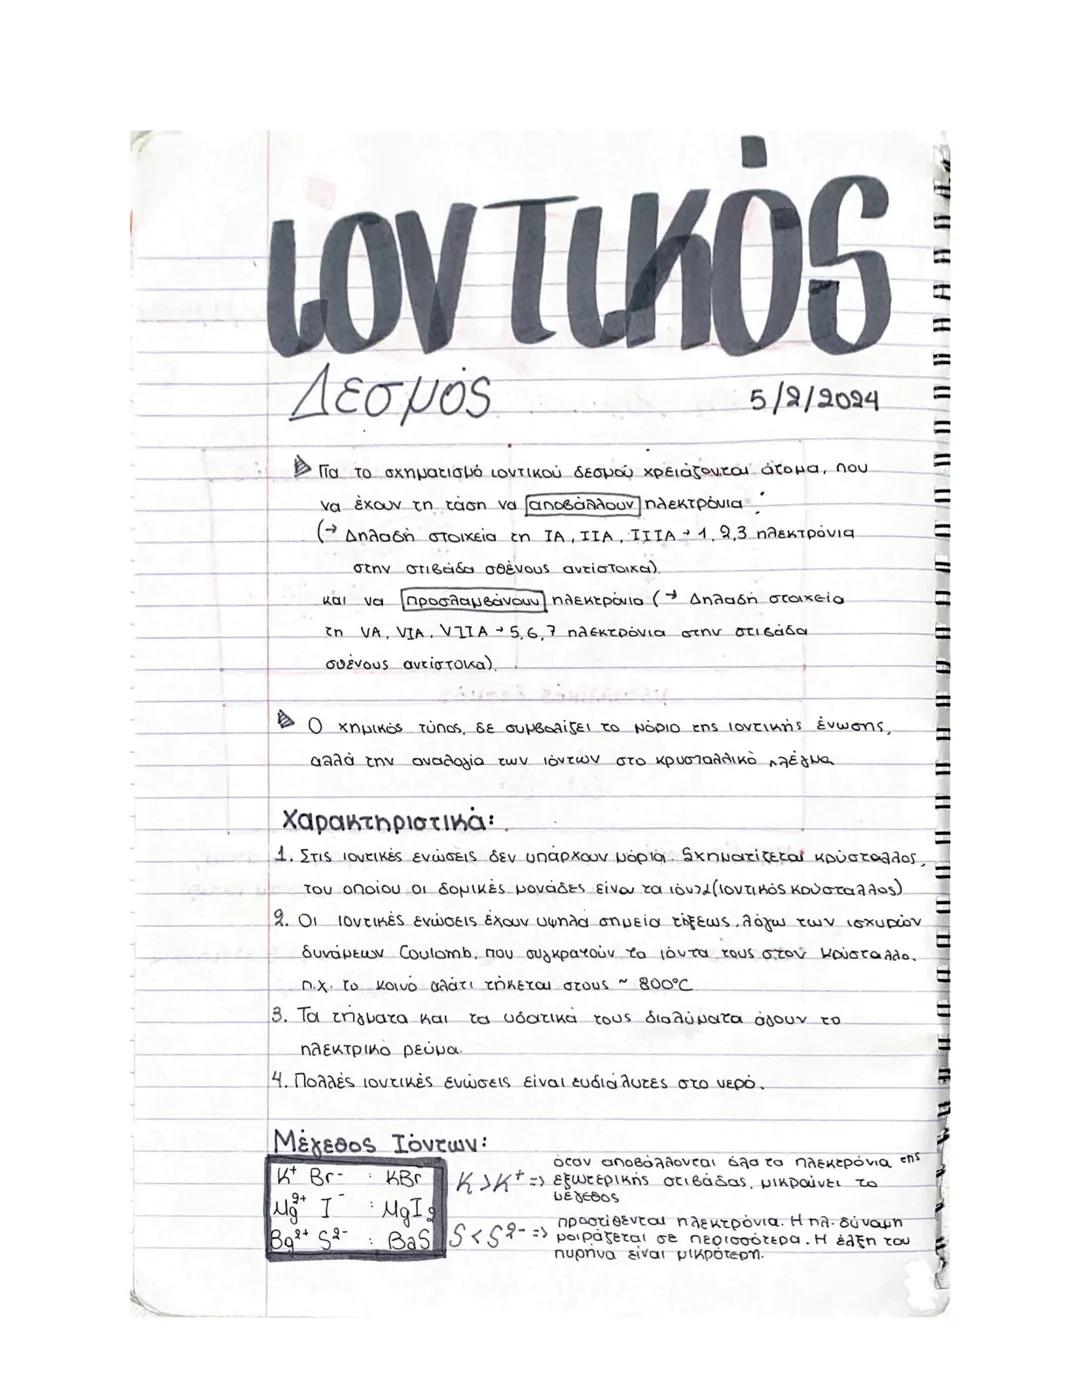 ιοντικός
Δεσμός 5/2/2024
Για το σχηματισμό ιοντικού δεσμού χρειάζονται άτομα, που
να έχουν τη τάση να αποβάλλουν ηλεκτρόνια:
(→ Δηλαδή στοιχεία τη ΙΑ, ΙΙΑ, ΙΙΙΑ → 1,2,3 ηλεκτρόνια
στην στιβάδα σθένους αντίστοιχα).
και να προσλαμβάνουν ηλεκτρόνια (→ Δηλαδή στοιχεία
τη VA, VIA, VIIA → 5,6,7 ηλεκτρόνια στην στιβάδα
σθένους αντίστοιχα).
Ο χημικός τύπος, δε συμβολίζει το μόριο της ιοντικής ένωσης,
αλλά την αναλογία των ιόντων στο κρυσταλλικό πλέγμα
Χαρακτηριστικά:
1. Στις ιοντικές ενώσεις δεν υπάρχουν μόρια. Σχηματίζεται κρύσταλλος,
του οποίου οι δομικές μονάδες είναι τα ιόντα (ιοντικός κρύσταλλος)
2. Οι ιοντικές ενώσεις έχουν υψηλά σημεία τήξεως, λόγω των ισχυρών
δυνάμεων Coulomb, που συγκρατούν τα ιόντα τους στον κρύσταλλο.
π.χ. το κοινό αλάτι τήκεται στους ~ 800°C
3. Τα τήγματα και τα υδατικά τους διαλύματα άγουν το
ηλεκτρικό ρεύμα.
4. Πολλές ιοντικές ενώσεις είναι ευδιάλυτες στο νερό.
Μέγεθος Ιόντων:
K⁺ Br⁻ : KBr
Mg²⁺ I⁻ : MgI₂
Ba²⁺ S²⁻ : BaS
K > K⁺ => όταν αποβάλλονται όλα τα ηλεκτρόνια της
εξωτερικής στιβάδας, μικραίνει το
μέγεθος
S < S²⁻ => προστίθενται ηλεκτρόνια. Η ηλ. δύναμη
μοιράζεται σε περισσότερα. Η έλξη του
πυρήνα είναι μικρότερη.